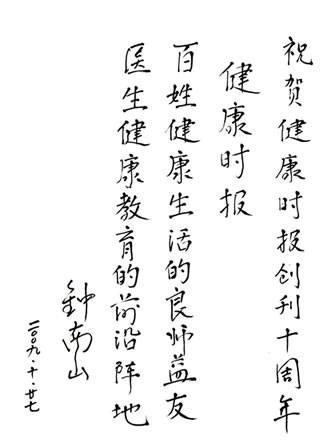 祝贺健康时报创刊十周年
健康时报
百姓健康生活的良师益友
医生健康教育的前沿阵地
钟南山
二〇〇九·十·廿七